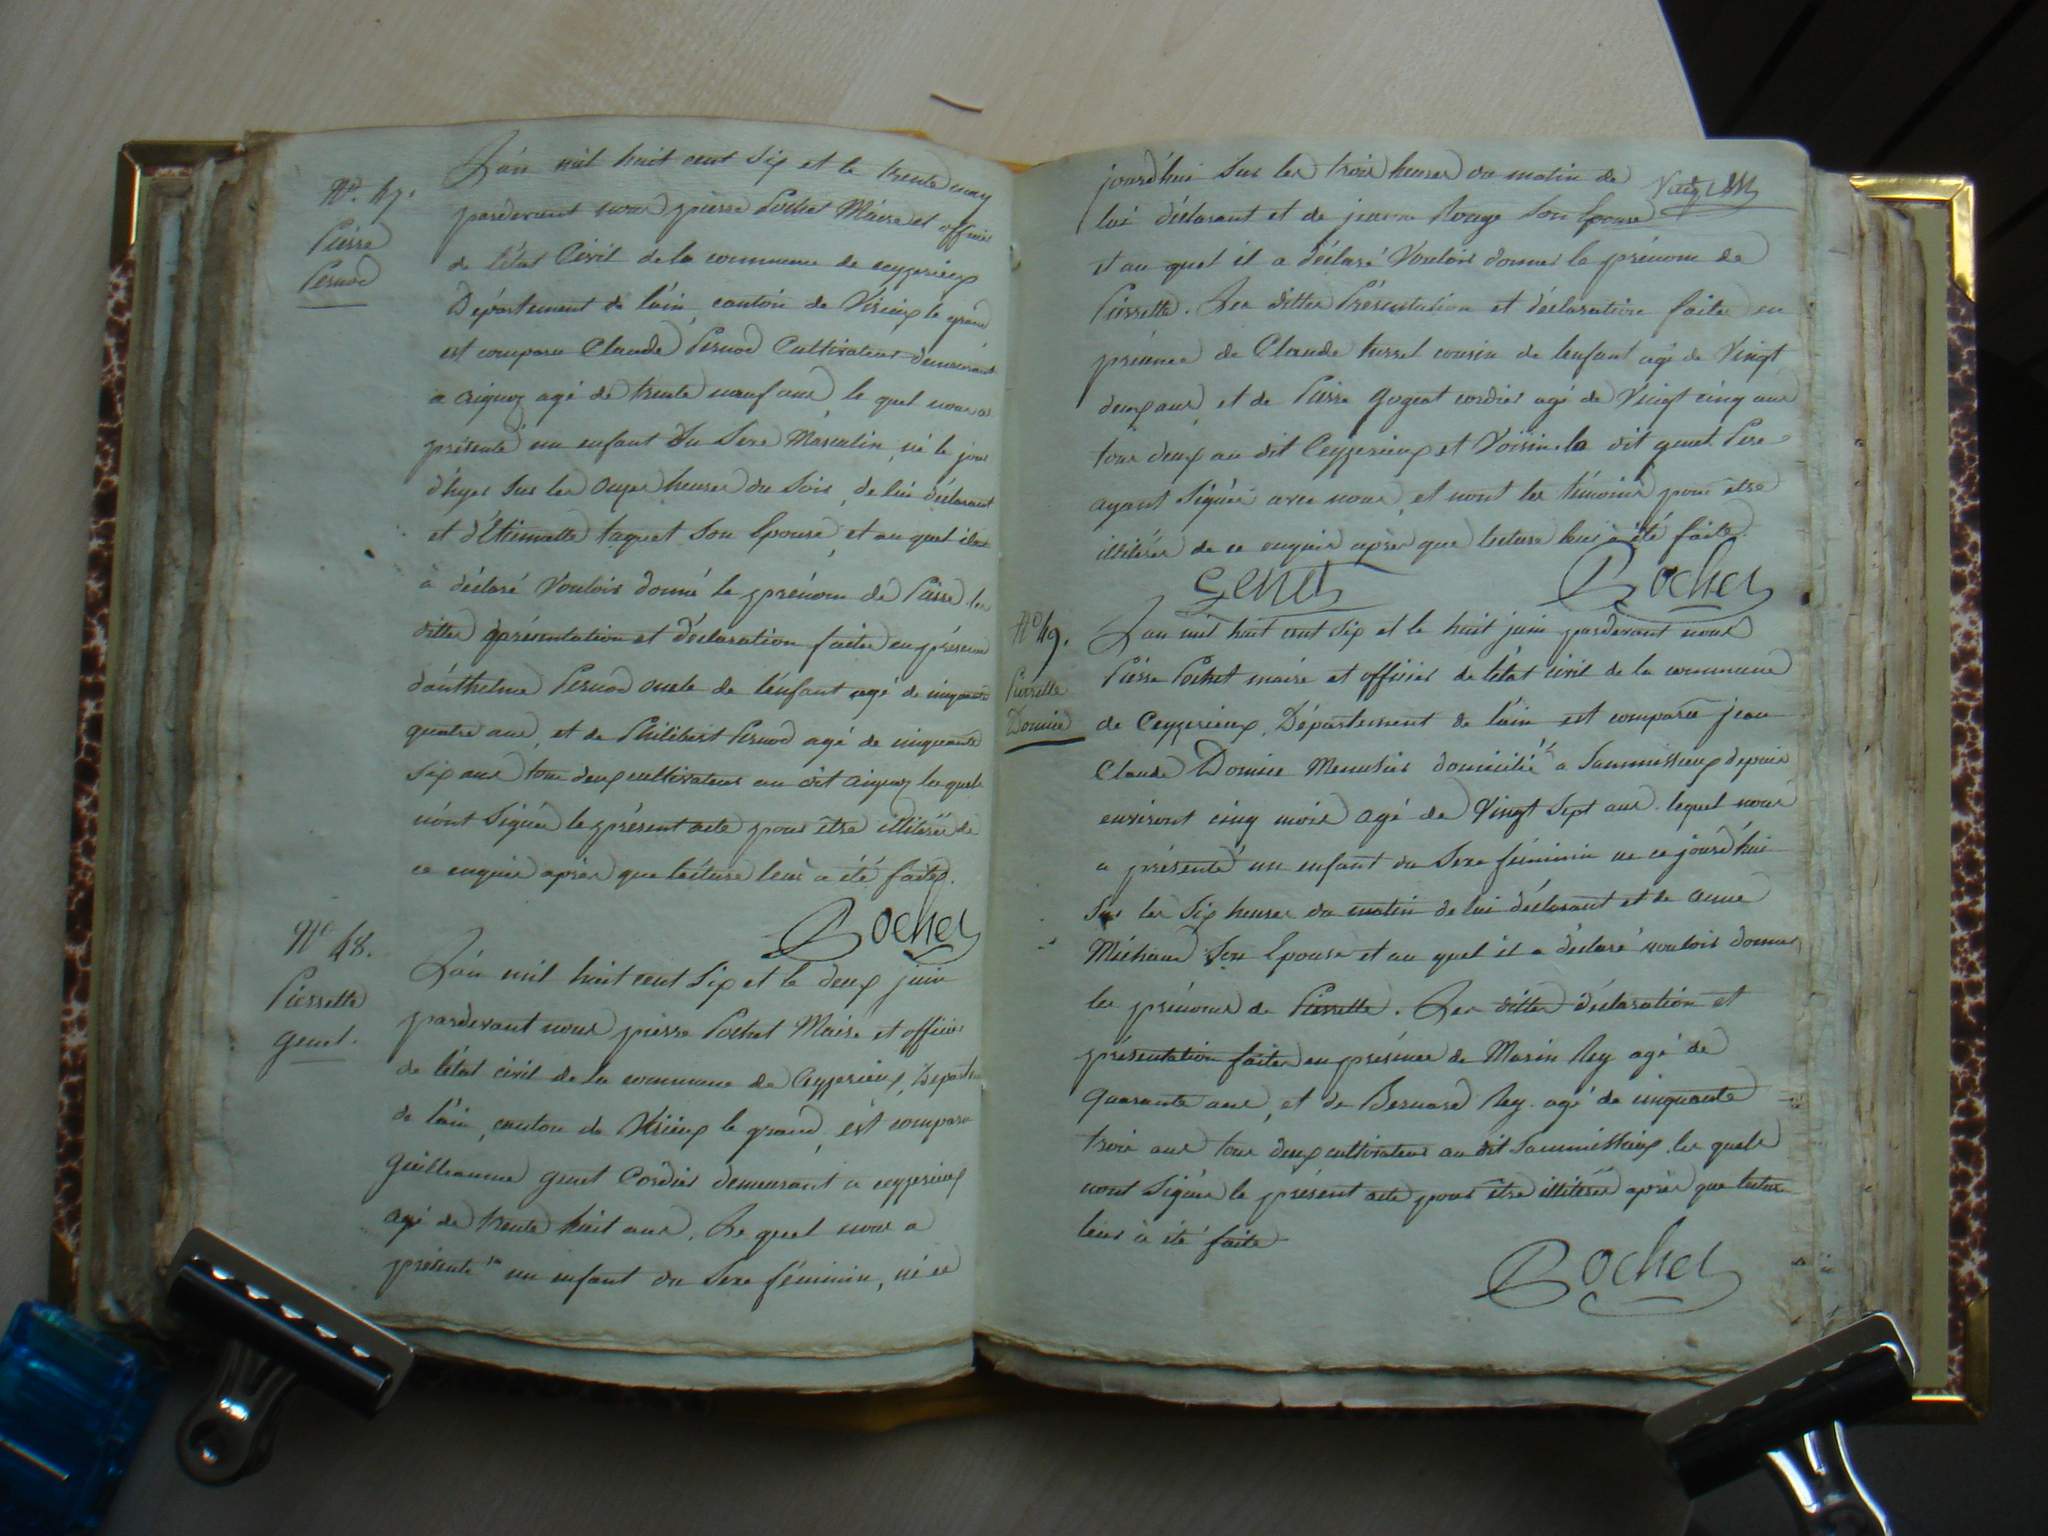 N.o 47.
Pierre
Pernod
L'an mil huit cent six et le trente may
pardevant nous pierre Pochet Maire et officier
de l'état Civil de la commune de ceyzerieux
Département de l'ain canton de Virieux le grand
est comparu Claude Pernod Cultivateur demeurant
a aignoz agé de trente neuf ans, le quel nous a
présenté un enfant du Sexe Masculin, né le jour
d'hyer sur les onzes heures du soir, de lui déclarant
et d'Etiennette taquet son Epouse, et au quel il
à déclaré Vouloir donné le prénom de Pierre. les
dittes présentation et déclaration faites en présence
d'anthelme Pernod oncle de l'enfant agé de cinquante
quatre ans, et de Philibert Pernod agé de cinquante
six ans tous deux cultivateurs au dit aignoz les quels
n'ont Signés le présent acte pour être illiterés de
ce enquis après que lecture leur a été faites.
Pochet
N.o 48.
Pierrette
genet.
L'an mil huit cent six et le deux juin
pardevant nous pierre Pochet Maire et officier
de l'état civil de la commune de Ceyzerieux, Départe
de l'ain, canton de Virieux le grand, est comparu
guillaume genet Cordier demeurant a ceyzerieux
agé de trente huit ans, Le quel nous a
présenté un enfant du Sexe féminin, né ce
jourd'hui sur les trois heures du matin de
lui déclarant et de jeanne Rouge son Epouse
et au quel il a déclaré Vouloir donner le prénom de
Pierrette. Les dittes Présentation et déclaration faites en
présence de Claude cousin de l'enfant agé de Vingt
deux ans, et de Pierre gogeat cordier agé de Vingt cinq ans
tous deux au dit Ceyzerieux et Voisin. le dit genet Pere
ayant Signée avec nous, et nont les témoins pour être
illiterés de ce enquis après que lecture leur à été faite.
Genet Pochet
N.o 49.
Pierrette
Domine
L'an mil huit cent six et le huit juin pardevant nous
Pierre Pochet maire et officier de l'état civil de la commune
de Ceyzerieux, Département de l'ain est comparu jean
Claude Domine Menusier domicilié a Sammissieux depuis
environt cinq mois agé de Vingt Sept ans. lequel nous
a présenté un enfant du Sexe féminin ne ce jourd'hui
sur les six heures du matin de lui déclarant et de anne
Michaud son Epouse et au quel il a déclaré vouloir donner
les prénoms de Pierrette. Les dittes déclaration et
présentation faites en présence de Marin Rey agé de
quarante ans, et de Bernard Rey agé de cinquante
trois ans tous deux cultivateurs au dit Sammissieux. les quels
nont Signés le présent acte pour être illiterés après que lecture
leur à été faite
Pochet